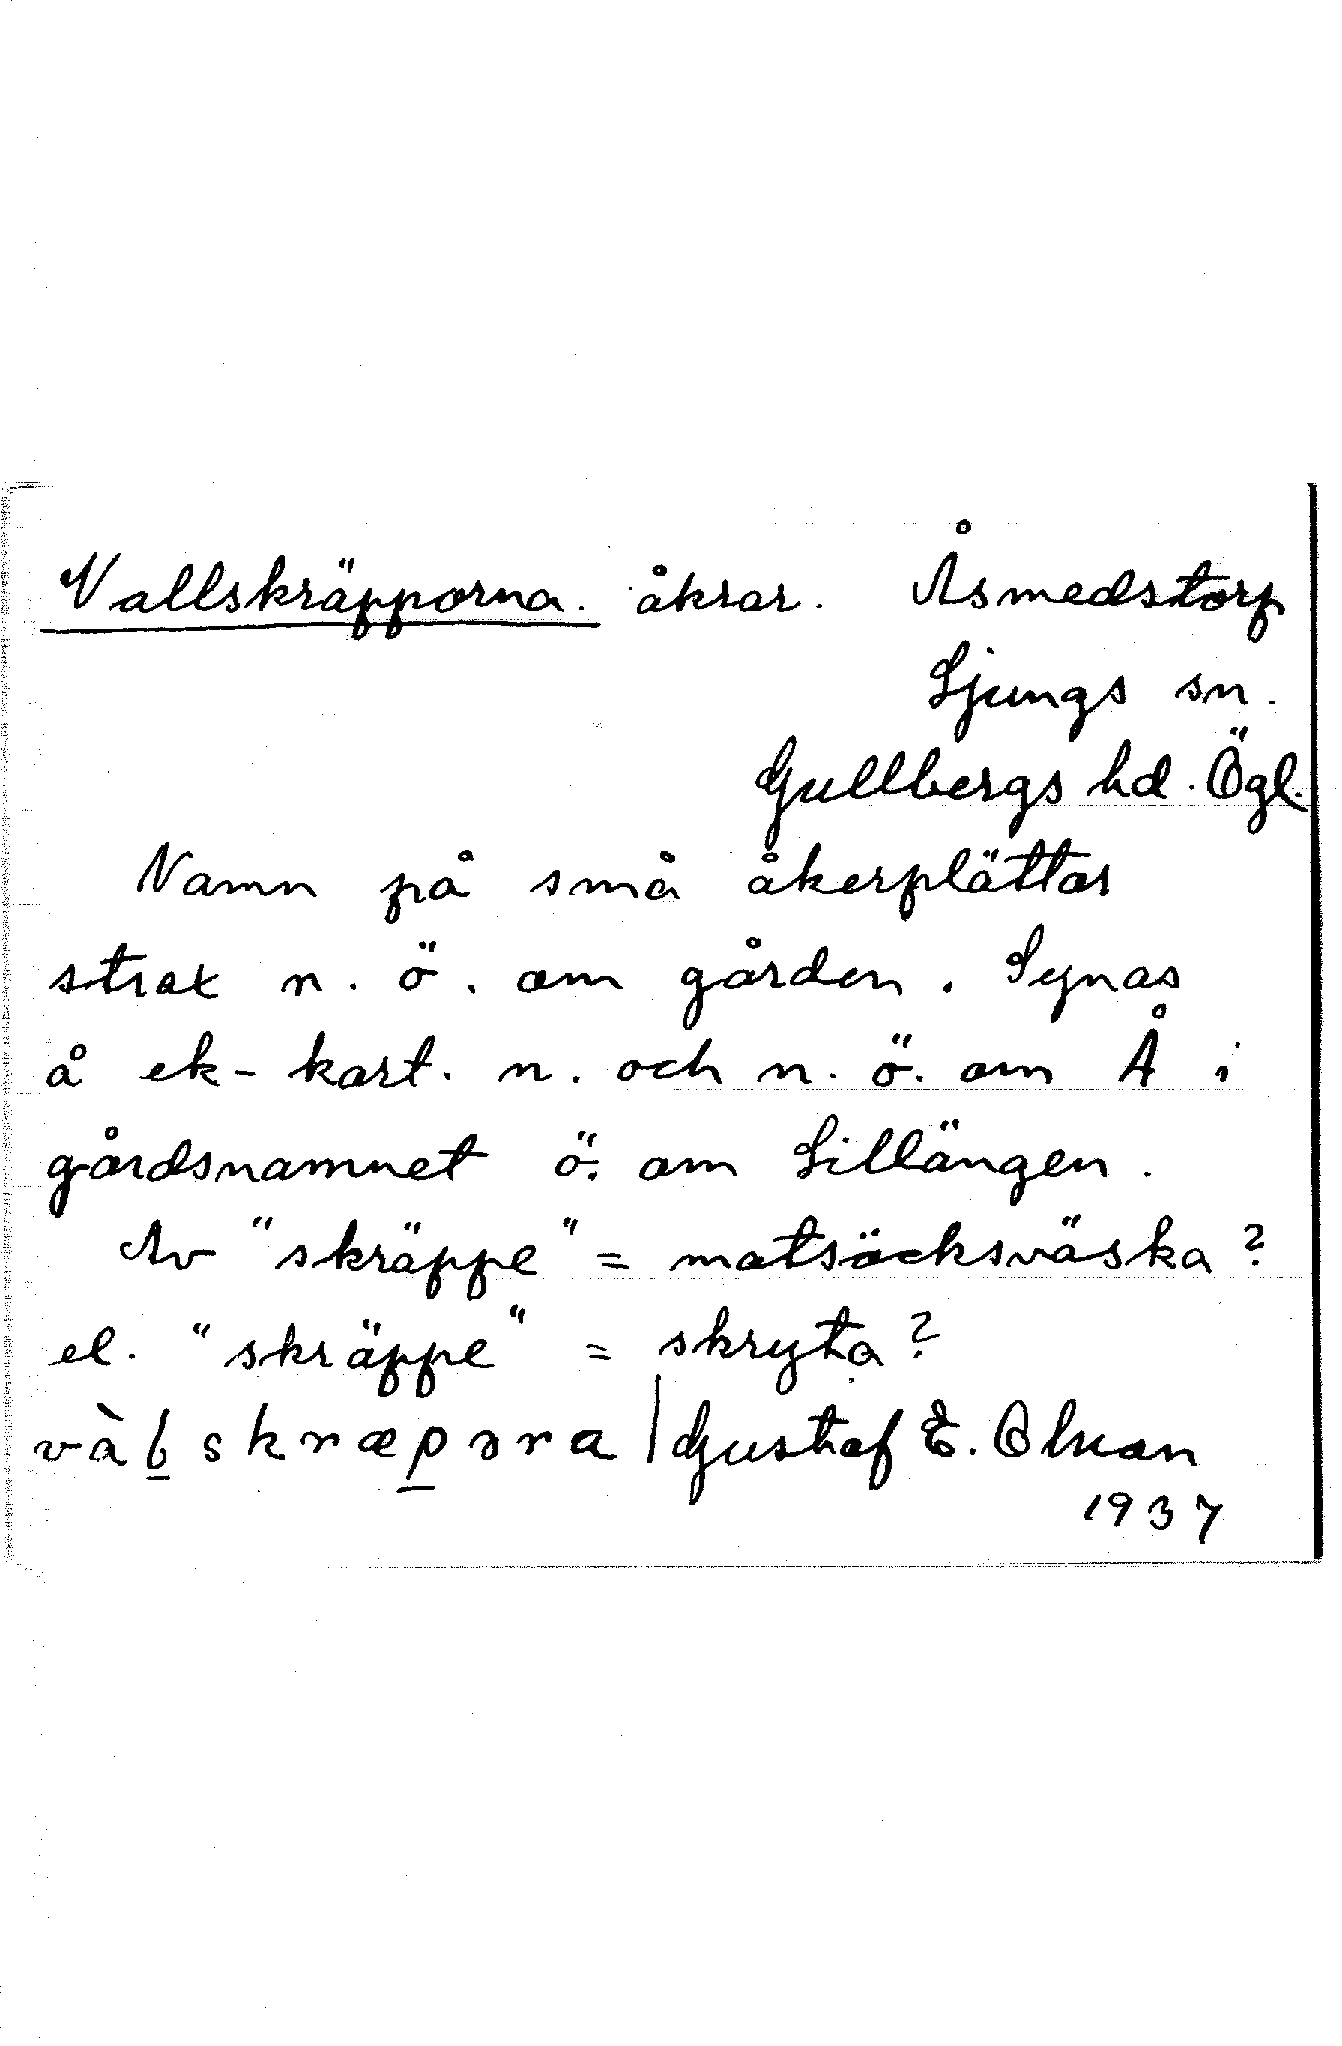 Vallskräpporna. åkrar. Åsmedstorp
Ljungs sn.
Gullbergs hd. Ögl.
Namn på små åkerplättar
strax n. ö. om gården. Synas
å ek-kart. n. och n. ö. om Å i
gårdsnamnet ö. om Lillängen.
Av "skräppe" = matsäcksväska?
el. "skräppe" = skryta?
Gustaf E. Olsson
1937